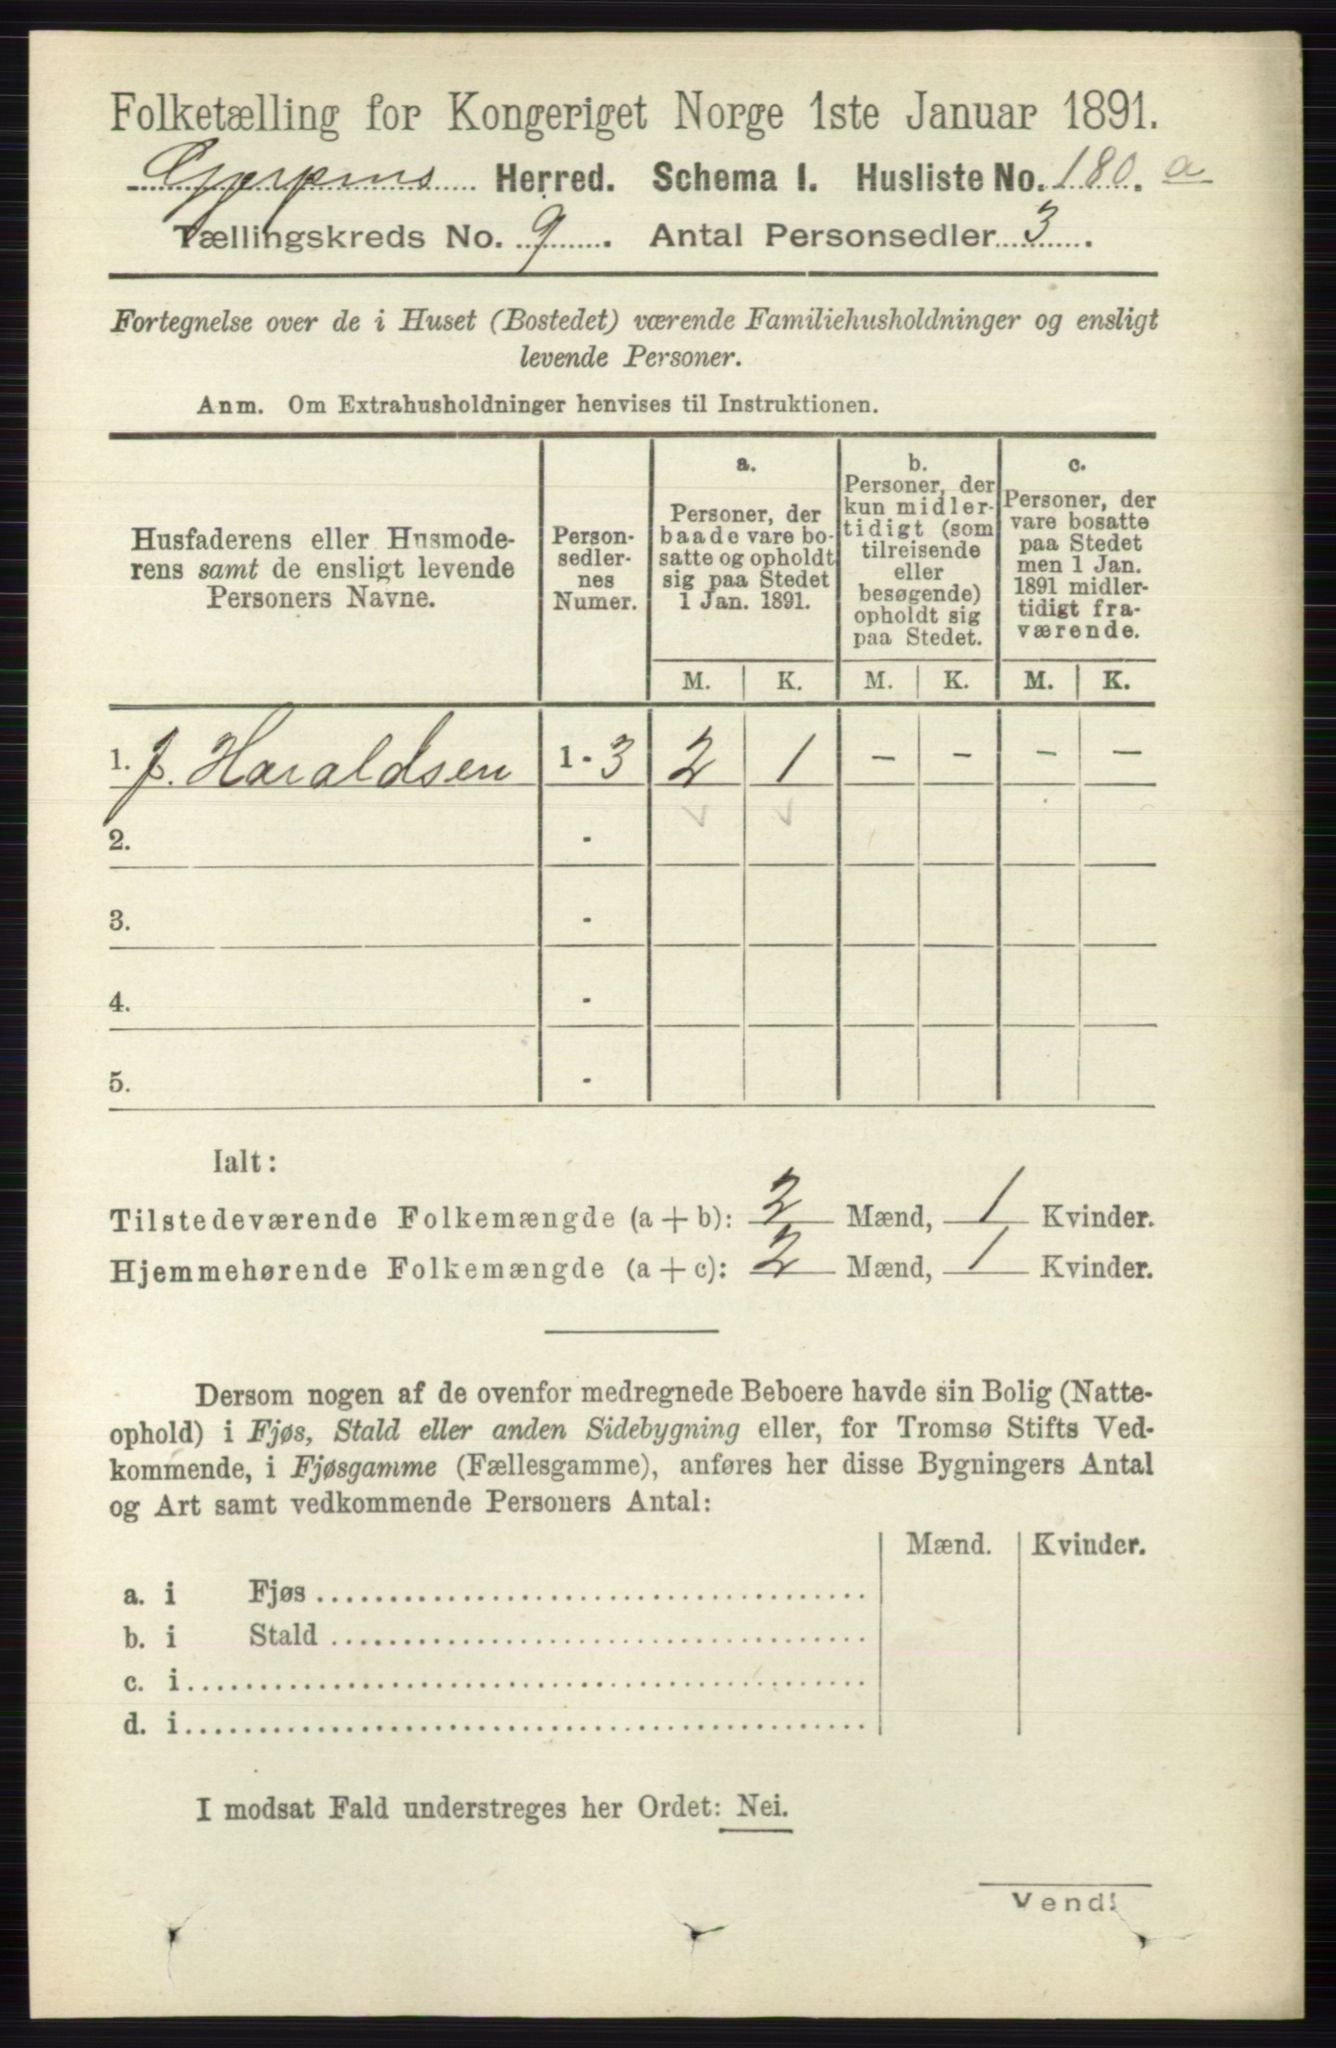 Folketælling for Kongeriget Norge 1ste Januar 1891.
Gjerpens Herred. Schema I. Husliste No. 180. a
Tællingskreds No. 9. Antal Personsedler 3.
Fortegnelse over de i Huset (Bostedet) værende Familiehusholdninger og ensligt
levende Personer.
Anm. Om Extrahusholdninger henvises til Instruktionen.
Husfaderens eller Husmode-
rens samt de ensligt levende
Personers Navne.
Person-
sedler-
nes
Numer.
a.
Personer, der
baade vare bo-
satte og opholdt
sig paa Stedet
1 Jan. 1891.
b.
Personer, der
kun midler-
tidigt (som
tilreisende
eller
besøgende)
opholdt sig
paa Stedet.
c.
Personer, der
vare bosatte
paa Stedet
men 1 Jan.
1891 midler-
tidigt fra-
værende.
M. K. M. K. M. K.
1. J. Haraldsen 1 - 3 2 1 - - - -
2. -
3. -
4. -
5. -
Ialt:
Tilstedeværende Folkemængde (a + b): 2 Mænd, 1 Kvinder.
Hjemmehørende Folkemængde (a + c): 2 Mænd, 1 Kvinder.
Dersom nogen af de ovenfor medregnede Beboere havde sin Bolig (Natte-
ophold) i Fjøs, Stald eller anden Sidebygning eller, for Tromsø Stifts Ved-
kommende, i Fjøsgamme (Fællesgamme), anføres her disse Bygningers Antal
og Art samt vedkommende Personers Antal:
Mænd. Kvinder.
a. i Fjøs
b. i Stald
c. i
d. i
I modsat Fald understreges her Ordet: Nei.
Vend!